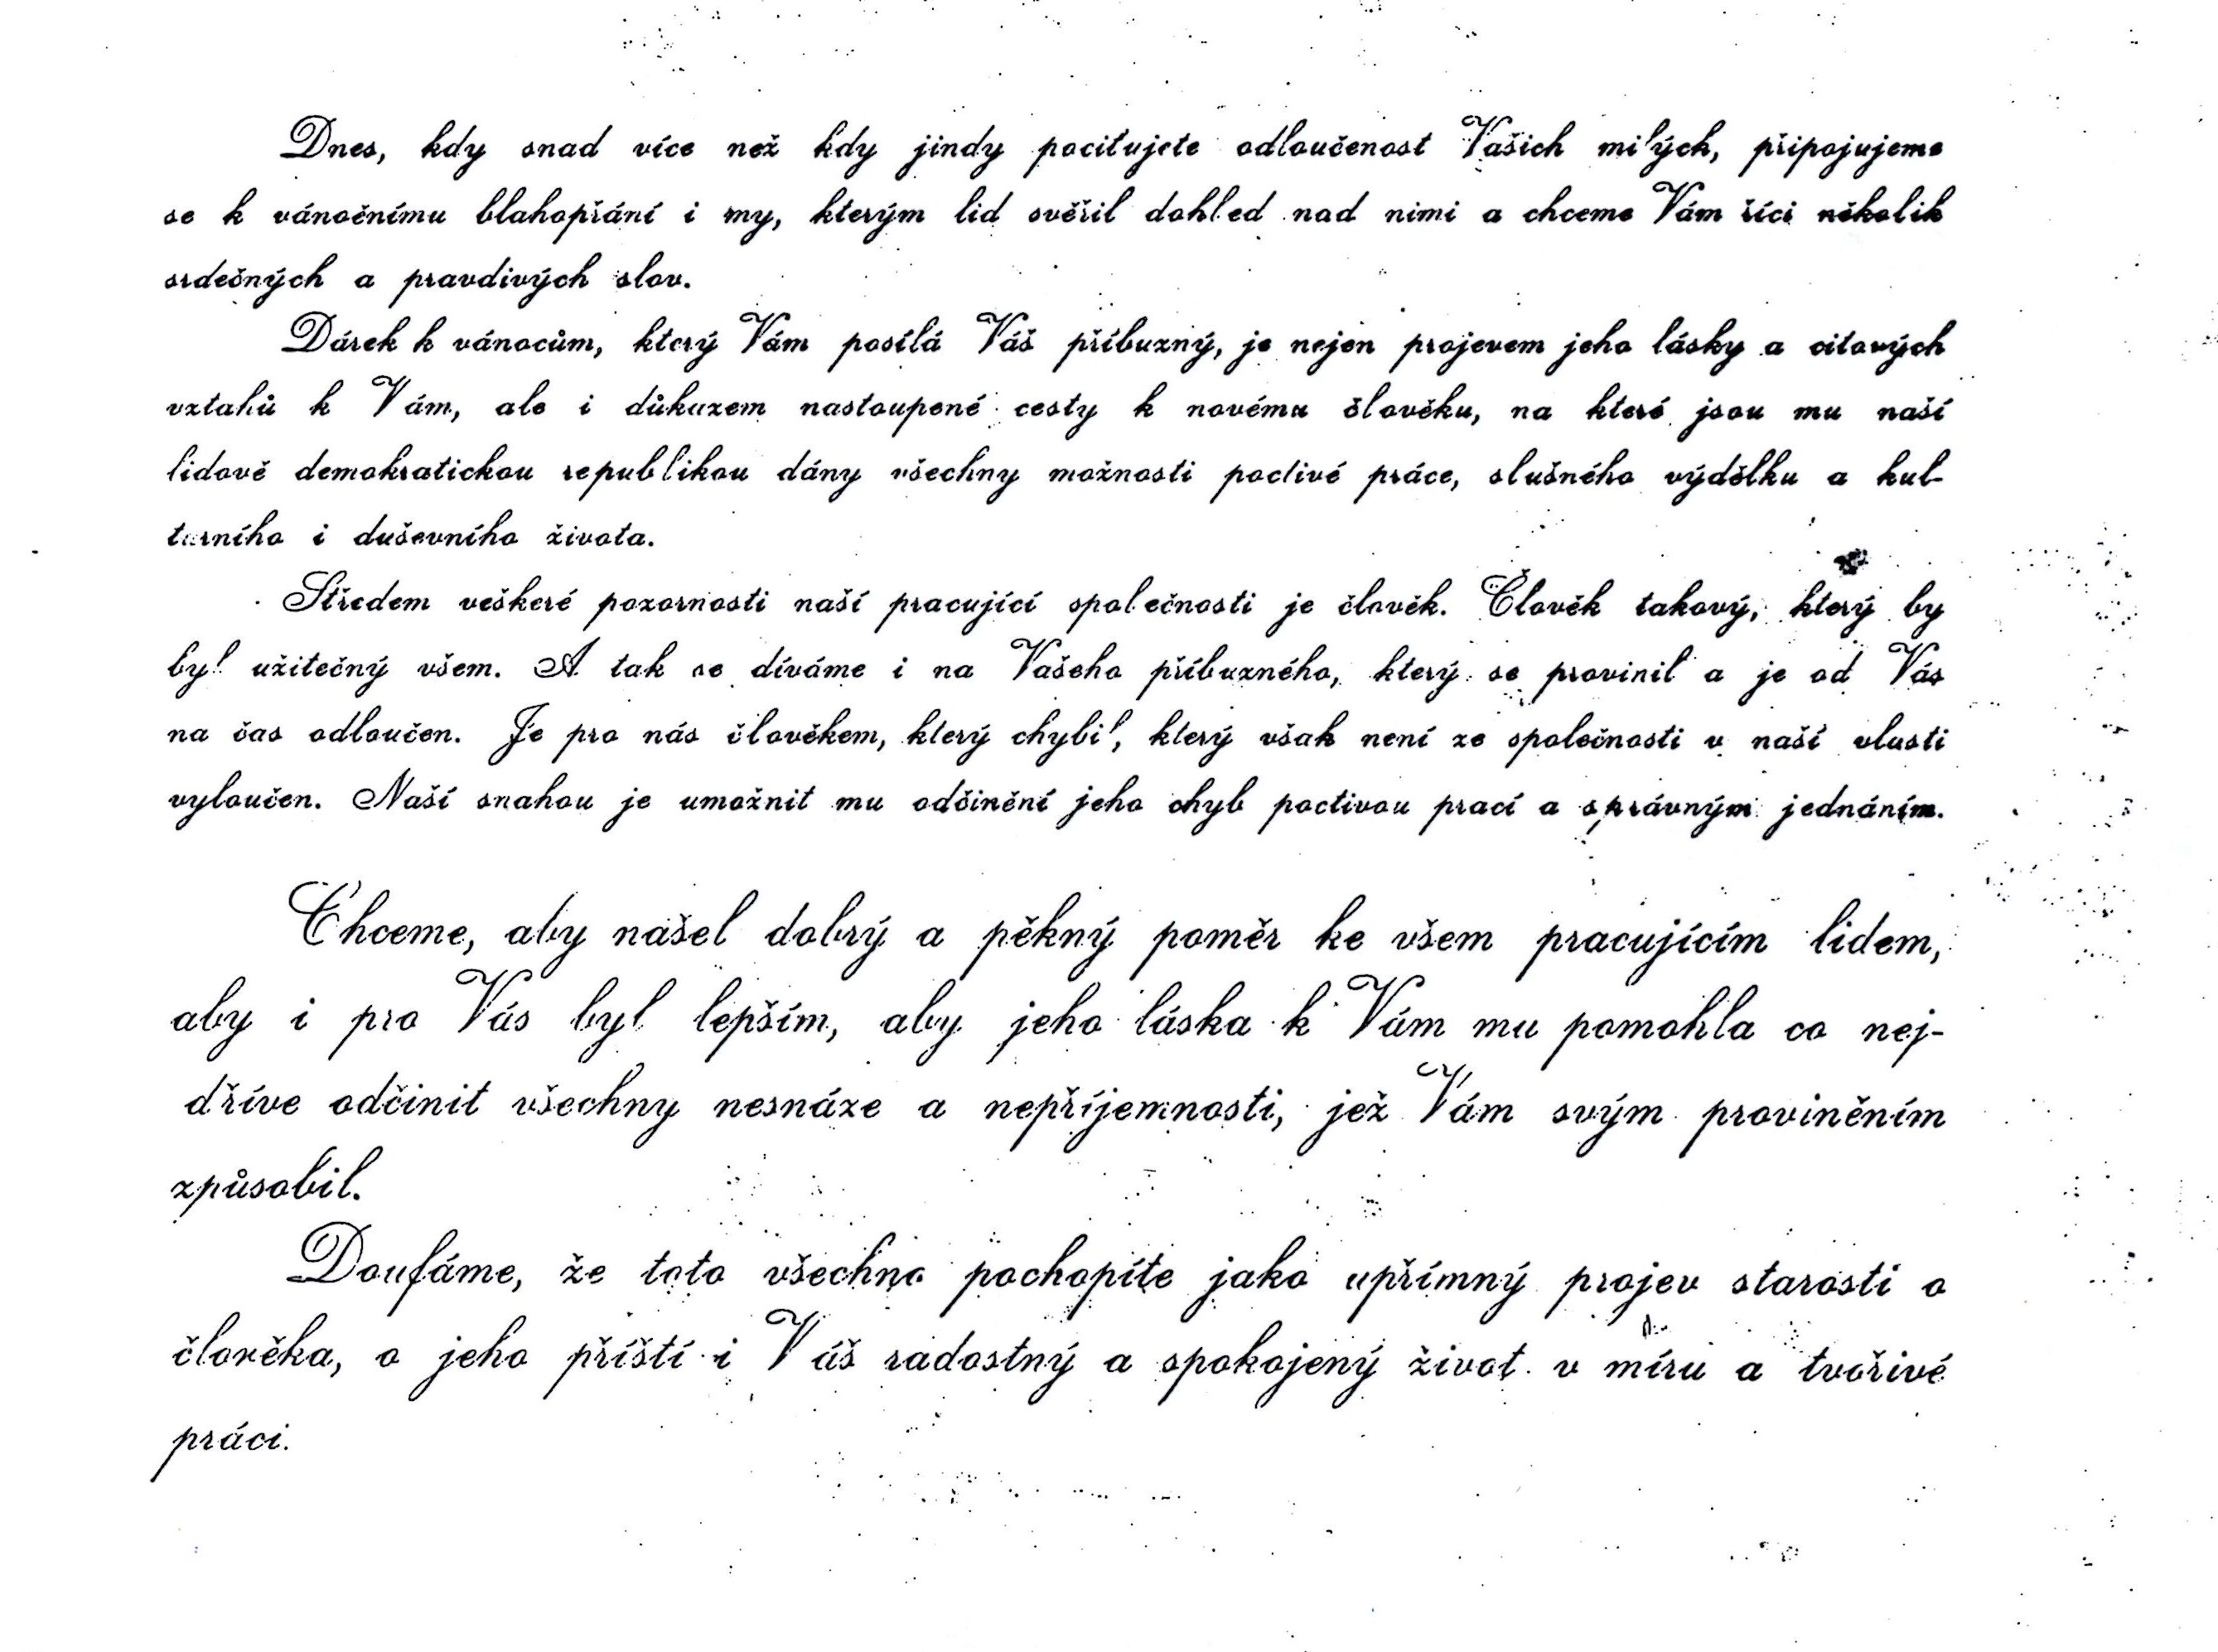 Dnes, kdy snad více než kdy jindy pociťujete odloučenost Vašich milých, připojujeme
se k vánočnímu blahopřání i my, kterým lid svěřil dohled nad nimi a chceme Vám říci několik
srdečných a pravdivých slov.
Dárek k vánocům, který Vám posílá Váš příbuzný, je nejen projevem jeho lásky a citových
vztahů k Vám, ale i důkazem nastoupené cesty k novému člověku, na které jsou mu naší
lidově demokratickou republikou dány všechny možnosti poctivé práce, slušného výdělku a kul-
turního i duševního života.
Středem veškeré pozornosti naší pracující společnosti je člověk. Člověk takový, který by
byl užitečný všem. A tak se díváme i na Vašeho příbuzného, který se provinil a je od Vás
na čas odloučen. Je pro nás člověkem, který chybil, který však není ze společnosti v naší vlasti
vyloučen. Naší snahou je umožnit mu odčinění jeho chyb poctivou prací a správným jednáním.
Chceme, aby našel dobrý a pěkný poměr ke všem pracujícím lidem,
aby i pro Vás byl lepším, aby jeho láska k Vám mu pomohla co nej-
dříve odčinit všechny nesnáze a nepříjemnosti, jež Vám svým proviněním
způsobil.
Doufáme, že toto všechno pochopíte jako upřímný projev starosti o
člověka, o jeho příští i Váš radostný a spokojený život v míru a tvořivé
práci.